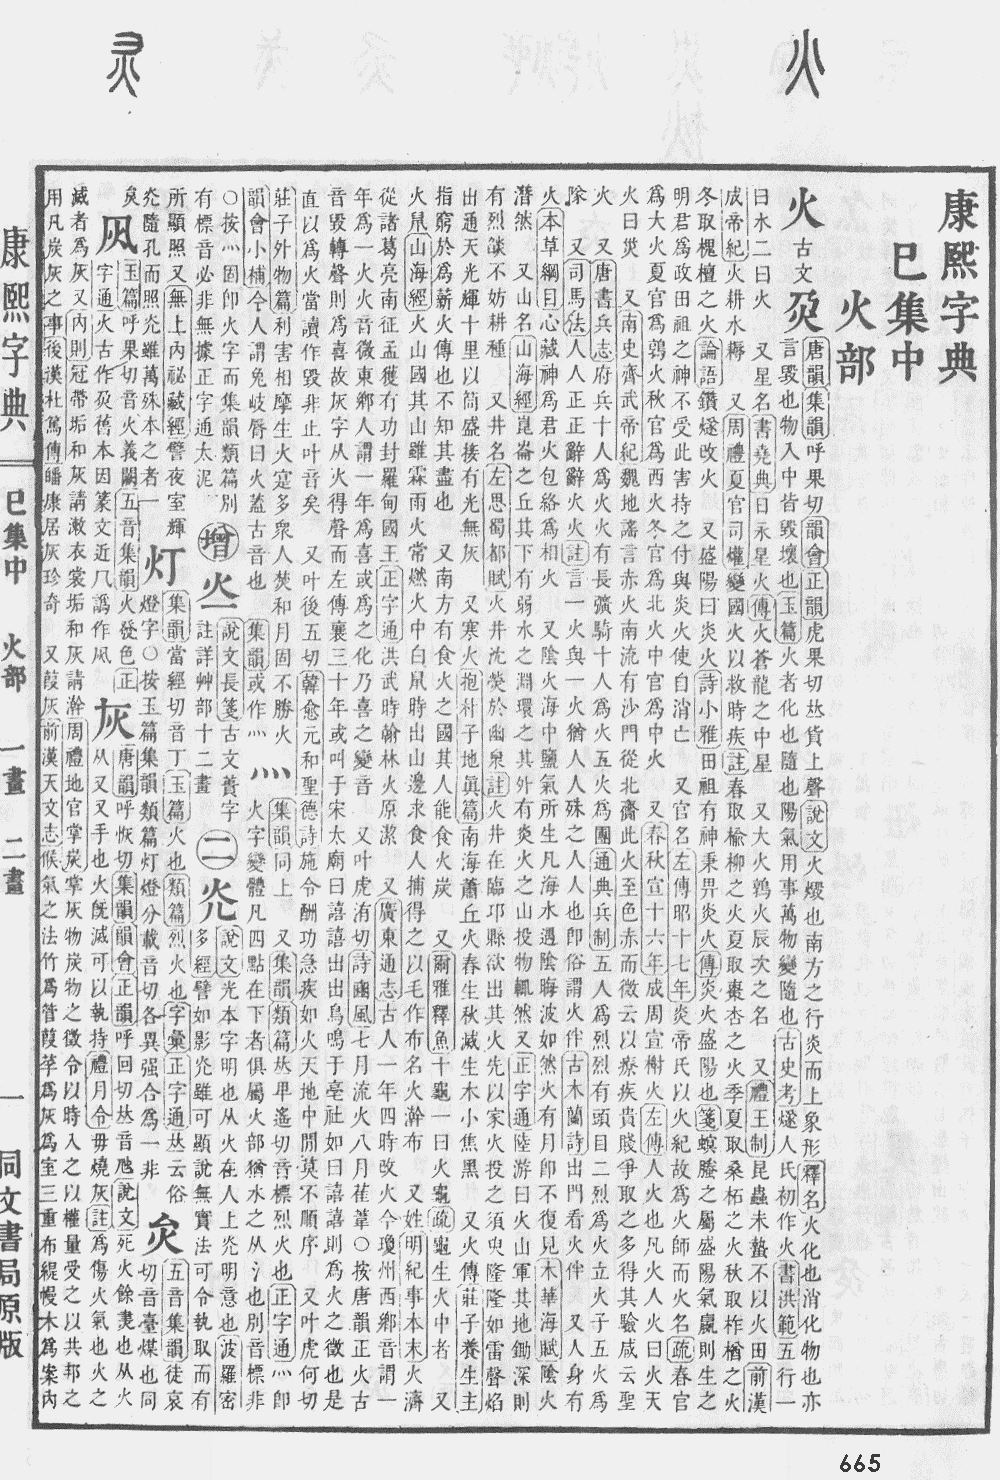 火
灰
康熙字典
巳集中
火部
火 古文 𤆄 唐韻集韻呼果切韻會正韻虎果切𠀤貨上聲說文火燬也南方之行炎而上象形釋名火化也消化物也亦
言毀也物入中皆毀壞也玉篇火者化也隨也陽氣用事萬物變隨也古史考燧人氏初作火書洪範五行一
曰水二曰火 又星名書堯典日永星火傳火蒼龍之中星 又大火鶉火辰次之名 又禮王制昆蟲未蟄不以火田前漢
成帝紀火耕水耨 又周禮夏官司爟變國火以救時疾註春取榆柳之火夏取棗杏之火季夏取桑柘之火秋取柞楢之火
冬取槐檀之火論語鑽燧改火 又盛陽曰炎火詩小雅田祖有神秉畀炎火傳炎火盛陽也箋螟螣之屬盛陽氣嬴則生之
明君爲政田祖之神不受此害持之付與炎火使自消亡 又官名左傳昭十七年炎帝氏以火紀故爲火師而火名疏春官
爲大火夏官爲鶉火秋官爲西火冬官爲北火中官爲中火 又春秋宣十六年成周宣榭火左傳人火也凡火人火曰火天
火曰災 又南史齊武帝紀魏地謠言赤火南流有沙門從北齎此火至色赤而微云以療疾貴賤爭取之多得其驗咸云聖
火 又唐書兵志府兵十人爲火火有長彍騎十人爲火五火爲團通典兵制五人爲烈烈有頭目二烈爲火立火子五火爲
隊 又司馬法人人正正辭辭火火註言一火與一火猶人人殊之人人也卽俗謂火伴古木蘭詩出門看火伴 又人身有
火本草綱目心藏神爲君火包絡爲相火 又陰火海中鹽氣所生凡海水遇陰晦波如然火有月卽不復見木華海賦陰火
潛然 又山名山海經崑崙之丘其下有弱水之淵環之其外有炎火之山投物輒然又正字通陸游曰火山軍其地鋤深則
有烈燄不妨耕種 又井名左思蜀都賦火井沈熒於幽泉註火井在臨邛縣欲出其火先以家火投之須臾隆隆如雷聲焰
出通天光輝十里以筒盛接有光無灰 又寒火抱朴子地眞篇南海蕭丘火春生秋滅生木小焦黑 又火傳莊子養生主
指窮於爲薪火傳也不知其盡也 又南方有食火之國其人能食火炭 又爾雅釋魚十龜一曰火龜疏龜生火中者 又
火鼠山海經火山國其山雖霖雨火常燃火中白鼠時出山邊求食人捕得之以毛作布名火澣布 又姓明紀事本末火濟
從諸葛亮南征孟獲有功封羅甸國王正字通洪武時翰林火原潔 又廣東通志古人一年四時改火今瓊州西鄉音謂一
年爲一火火音微東鄉人謂一年爲喜或爲之化乃喜之變音 又叶虎洧切詩豳風七月流火八月萑葦○按唐韻正火古
音毀轉聲則爲喜故灰字从火得聲而左傳襄三十年或叫于宋太廟曰譆譆出出鳥鳴于亳社如曰譆譆則爲火之徵也是
直以爲火當讀作毀非止叶音矣 又叶後五切韓愈元和聖德詩施令酬功急疾如火天地中閒莫不順序 又叶虎何切
莊子外物篇利害相摩生火寔多衆人焚和月固不勝火 灬 集韻同上 又集韻類篇𠀤卑遙切音標烈火也正字通灬卽
韻會小補今人謂兔岐脣曰火蓋古音也 集韻或作灬 火字變體凡四點在下者俱屬火部猶水之从氵也別音標非
○按灬固卽火字而集韻類篇別 增 一 說文長箋古文蕡字 二 灮 說文光本字明也从火在人上灮明意也波羅密
有標音必非無據正字通太泥 註詳艸部十二畫 多經譬如影灮雖可顯說無實法可令執取而有
所顯照又無上內祕藏經譬夜室輝 灯 集韻當經切音丁玉篇火也類篇烈火也字彙正字通𠀤云俗
灮隨孔而照灮雖萬殊本之者一 燈字○按玉篇集韻類篇灯燈分載音切各異强合爲一非 灻 五音集韻徒哀
矣 凨 玉篇呼果切音火義闕五音集韻火發色正 切音臺煤也同
字通火古作𤆄舊本因篆文近几譌作凨 灰 唐韻呼恢切集韻韻會正韻呼回切𠀤音虺說文死火餘㶳也从火
从又又手也火旣滅可以執持禮月令毋燒灰註爲傷火氣也火之
滅者爲灰又內則冠帶垢和灰請漱衣裳垢和灰請澣周禮地官掌炭掌灰物炭物之徵令以時入之以權量受之以共邦之
用凡炭灰之事後漢杜篤傳皤康居灰珍奇 又葭灰前漢天文志候氣之法竹爲管葭莩爲灰爲室三重布緹幔木爲案內
康熙字典
巳集中 火部 一畫 二畫
一
同文書局原版
665